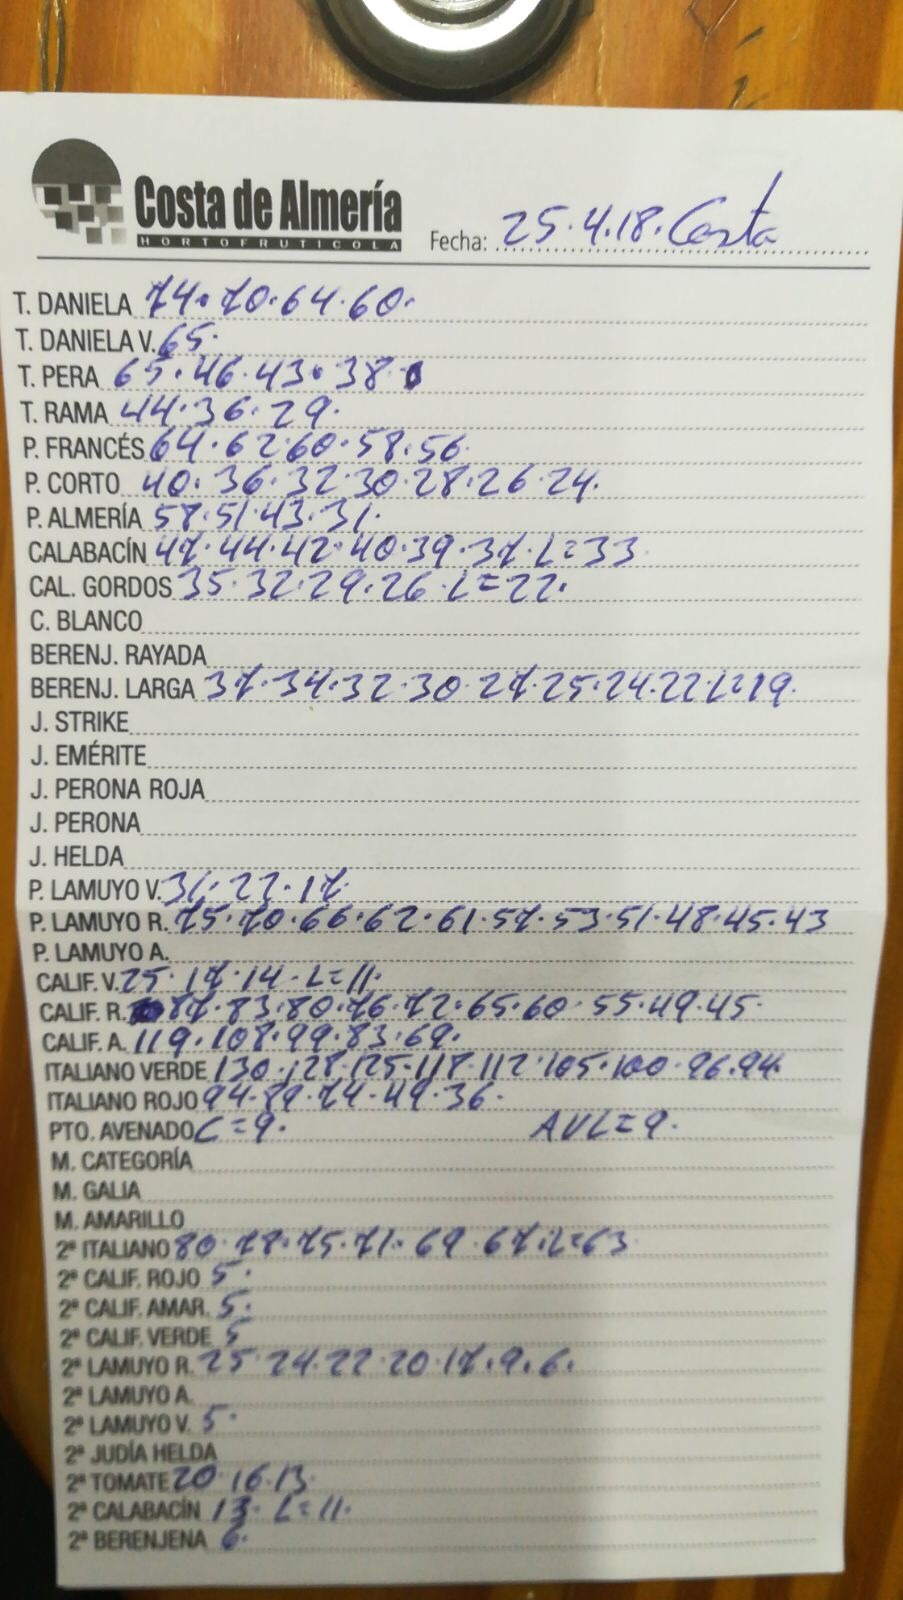 Costa de Almería
HORTOFRUTICOLA
Fecha: 25.4.18. Costa
T. DANIELA 74.70.64.60.
T. DANIELA V. 65.
T. PERA 65.46.43.38.
T. RAMA 44.36.29.
P. FRANCÉS 64.62.60.58.56.
P. CORTO 40.36.32.30.28.26.24.
P. ALMERÍA 58.51.43.31.
CALABACÍN 47.44.42.40.39.37.L=33
CAL. GORDOS 35.32.29.26.L=22.
C. BLANCO
BERENJ. RAYADA
BERENJ. LARGA 37.34.32.30.27.25.24.22.L=19.
J. STRIKE
J. EMÉRITE
J. PERONA ROJA
J. PERONA
J. HELDA
P. LAMUYO V. 31.22.17.
P. LAMUYO R. 75.70.66.62.61.57.53.51.48.45.43
P. LAMUYO A.
CALIF. V. 25.17.14.L=11.
CALIF. R. 87.83.80.76.72.65.60.55.49.45.
CALIF. A. 119.108.99.83.69.
ITALIANO VERDE 130.128.125.118.112.105.100.96.94.
ITALIANO ROJO 94.89.74.49.36.
PTO. AVENADO C=9. AVL=9.
M. CATEGORÍA
M. GALIA
M. AMARILLO
2ª ITALIANO 80.78.75.71.69.67.L=63
2ª CALIF. ROJO 5.
2ª CALIF. AMAR. 5.
2ª CALIF. VERDE 5
2ª LAMUYO R. 25.24.22.20.17.9.6.
2ª LAMUYO A.
2ª LAMUYO V. 5.
2ª JUDÍA HELDA
2ª TOMATE 20.16.13.
2ª CALABACÍN 13. L=11.
2ª BERENJENA 6.